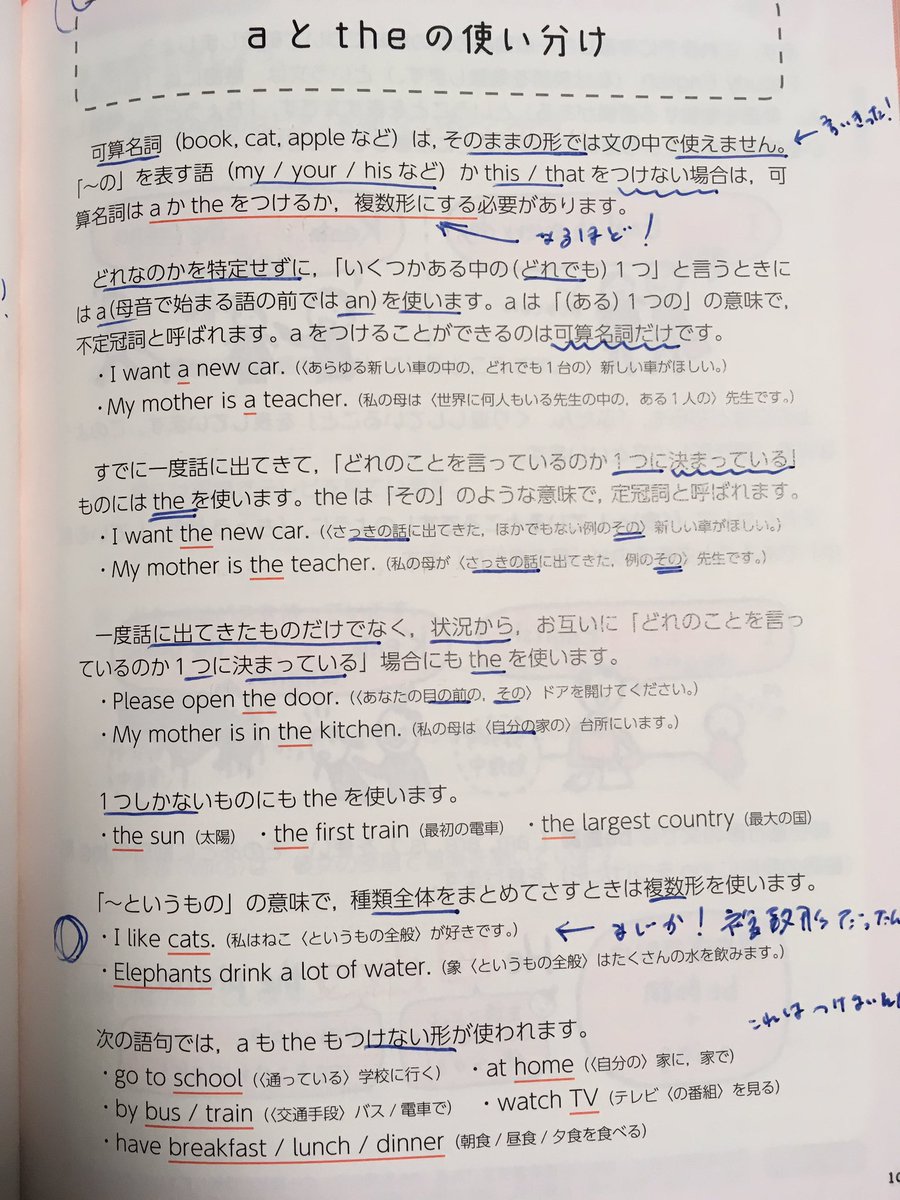 aとtheの使い分け
可算名詞（book, cat, apple など）は，そのままの形では文の中で使えません。
← 言いきった！
「～の」を表す語（my / your / his など）か this / that をつけない場合は，可
算名詞は a か the をつけるか，複数形にする必要があります。
← なるほど！
どれなのかを特定せずに，「いくつかある中の（どれでも）1つ」と言うときに
は a（母音で始まる語の前では an）を使います。a は「（ある）1つの」の意味で，
不定冠詞と呼ばれます。a をつけることができるのは可算名詞だけです。
・I want a new car.（〈あらゆる新しい車の中の，どれでも1台の〉新しい車がほしい。）
・My mother is a teacher.（私の母は〈世界に何人もいる先生の中の，ある1人の〉先生です。）
すでに一度話に出てきて，「どれのことを言っているのか1つに決まっている」
ものには the を使います。the は「その」のような意味で，定冠詞と呼ばれます。
・I want the new car.（〈さっきの話に出てきた，ほかでもない例のその〉新しい車がほしい。）
・My mother is the teacher.（私の母が〈さっきの話に出てきた，例のその〉先生です。）
一度話に出てきたものだけでなく，状況から，お互いに「どれのことを言っ
ているのか1つに決まっている」場合にも the を使います。
・Please open the door.（〈あなたの目の前の，その〉ドアを開けてください。）
・My mother is in the kitchen.（私の母は〈自分の家の〉台所にいます。）
1つしかないものにも the を使います。
・the sun（太陽） ・the first train（最初の電車） ・the largest country（最大の国）
「～というもの」の意味で，種類全体をまとめてさすときは複数形を使います。
・I like cats.（私はねこ〈というもの全般〉が好きです。）
← まじか！複数形だったん
・Elephants drink a lot of water.（象〈というもの全般〉はたくさんの水を飲みます。）
これはつけないん
次の語句では，a も the もつけない形が使われます。
・go to school（〈通っている〉学校に行く） ・at home（〈自分の〉家に，家で）
・by bus / train（〈交通手段〉バス / 電車で） ・watch TV（テレビ〈の番組〉を見る）
・have breakfast / lunch / dinner（朝食 / 昼食 / 夕食を食べる）